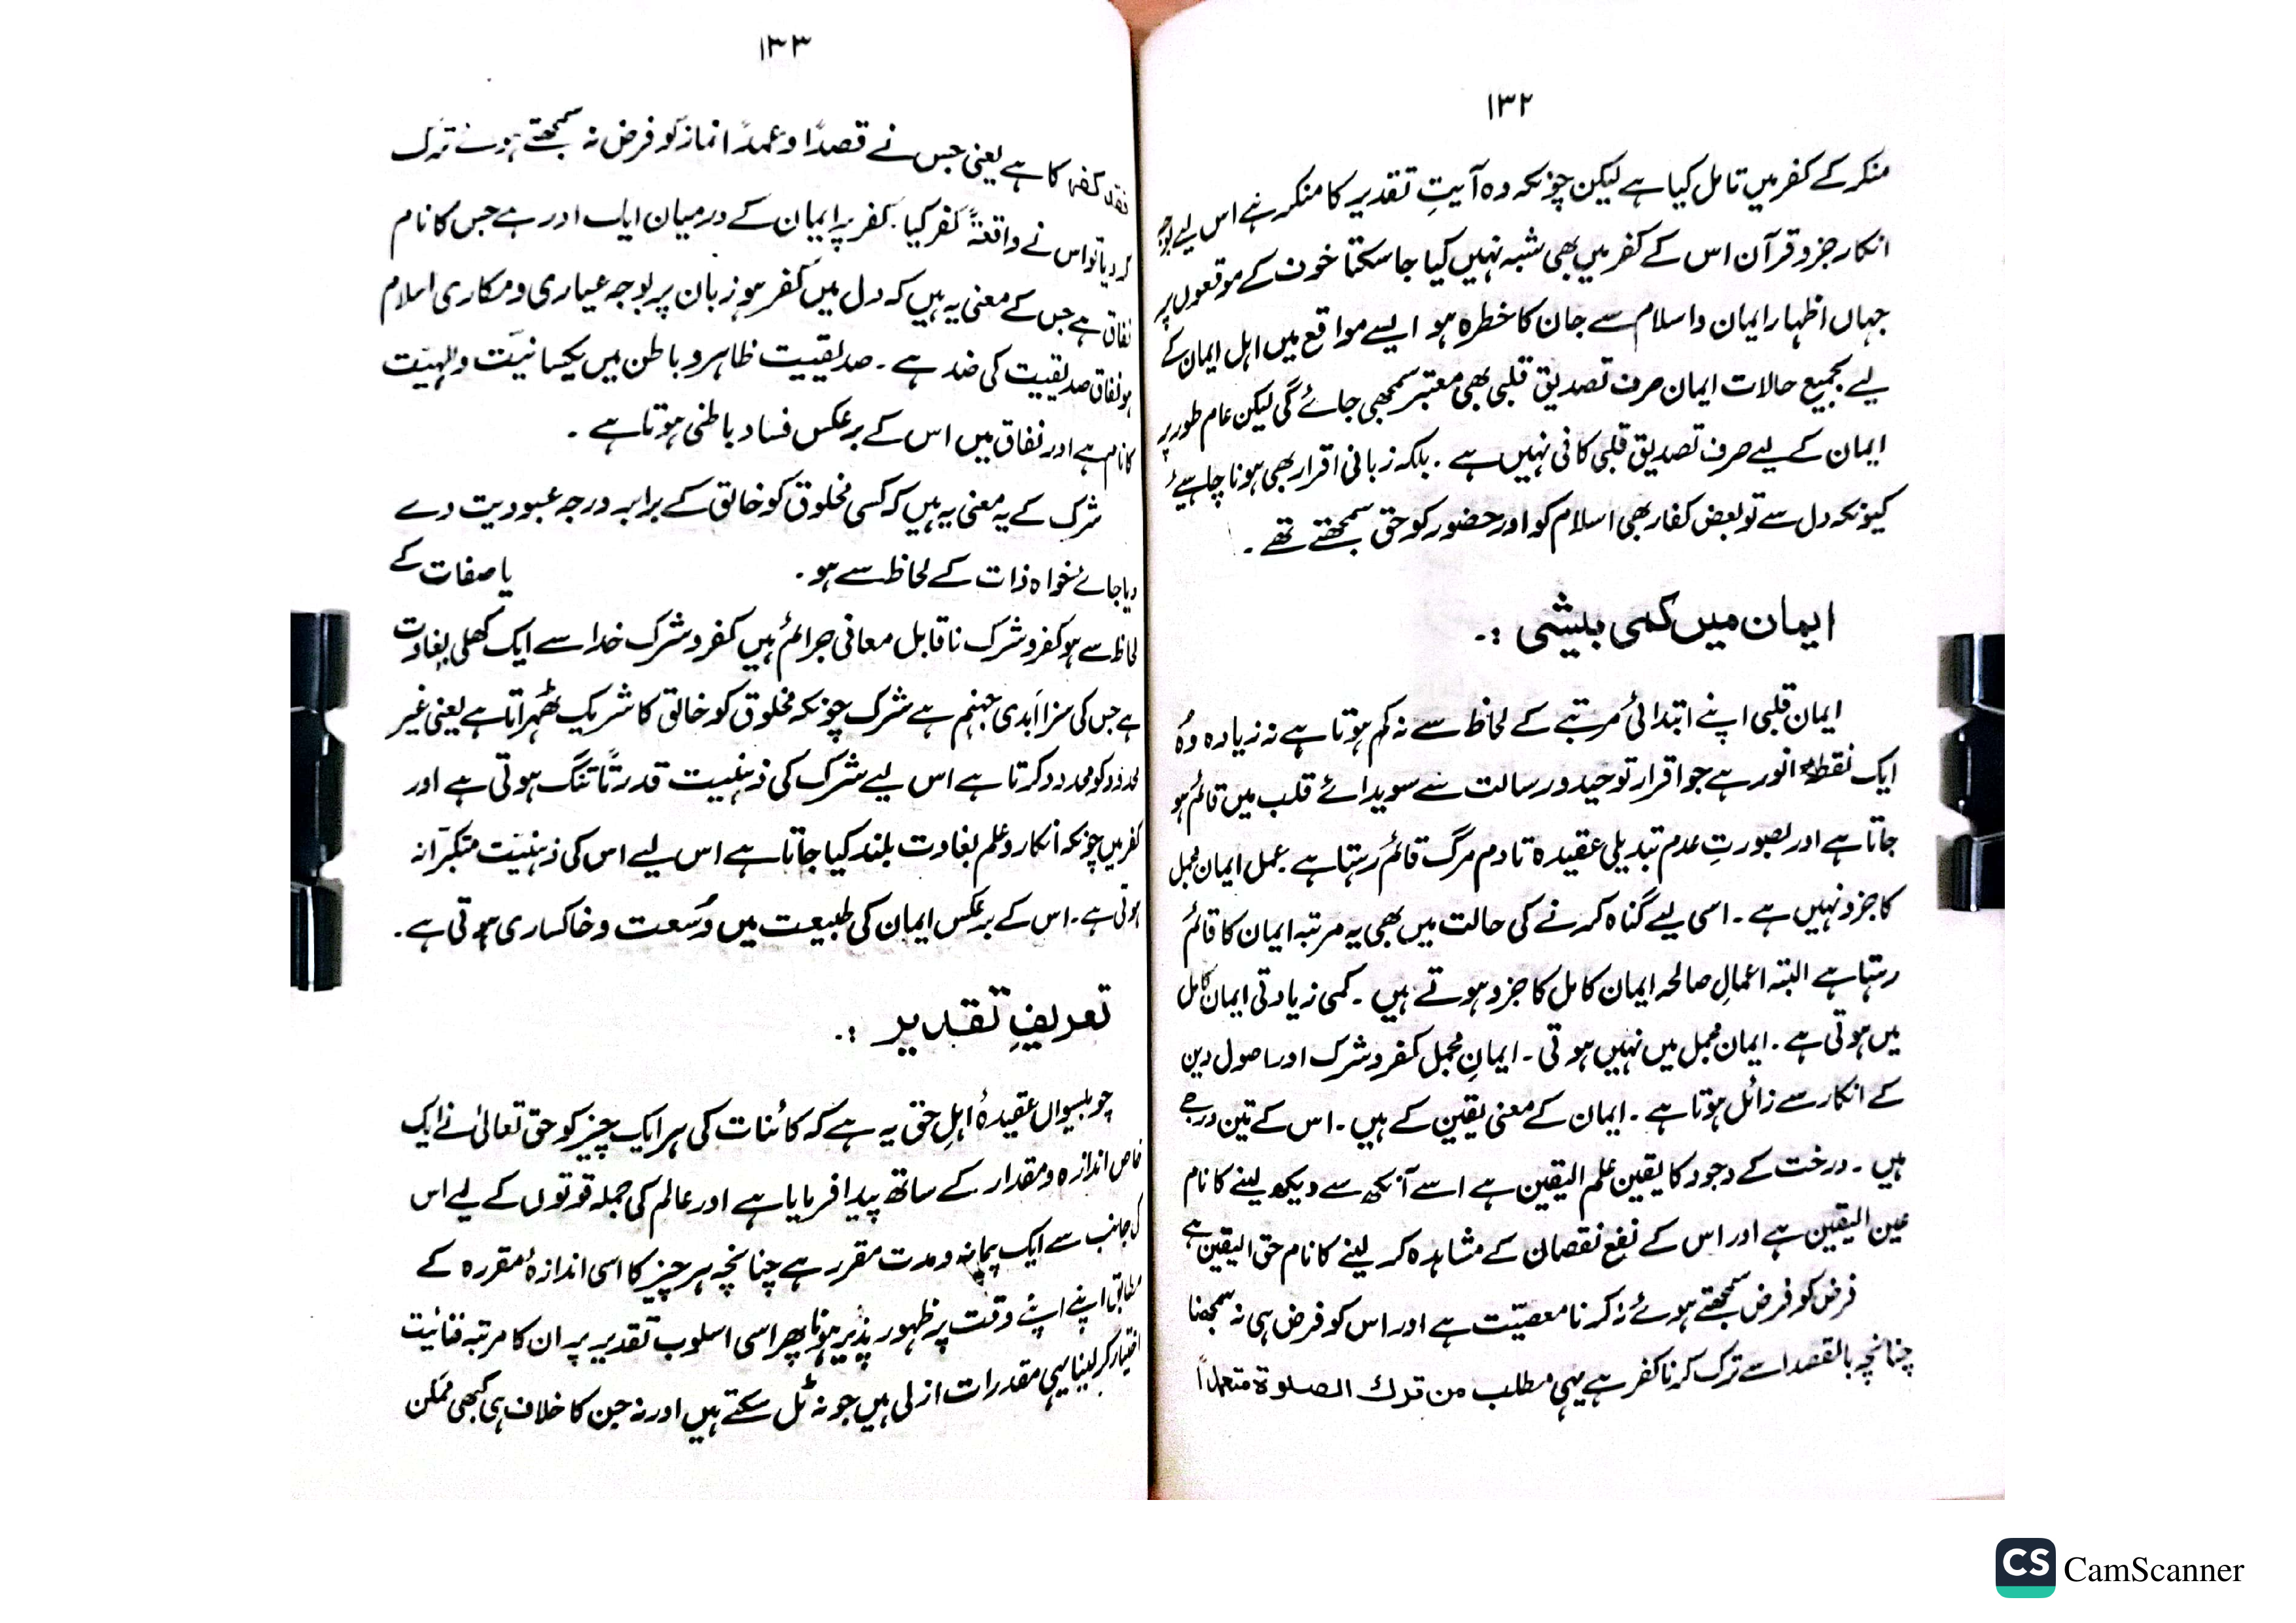 ۱۳۲
منکر کے کفر میں تامل کیا ہے لیکن چونکہ وہ آیتِ تقدیر کا منکر ہے اس لیے بوجہ
انکار جزو قرآن اس کے کفر میں بھی شبہ نہیں کیا جا سکتا خوف کے موقعوں پر
جہاں اظہار ایمان و اسلام سے جان کا خطرہ ہو ایسے مواقع میں اہل ایمان کے
لیے بجمیع حالات ایمان صرف تصدیق قلبی بھی معتبر سمجھی جائے گی لیکن عام طور پر
ایمان کے لیے صرف تصدیق قلبی کافی نہیں ہے ۔ بلکہ زبانی اقرار بھی ہونا چاہیئے
کیونکہ دل سے تو بعض کفار بھی اسلام کو اور حضور کو حق سمجھتے تھے ۔
ایمان میں کمی بیشی :۔
ایمان قلبی اپنے ابتدائی مرتبے کے لحاظ سے نہ کم ہوتا ہے نہ زیادہ وہُ
ایک نقطہ انور ہے جو اقرار توحید و رسالت سے سویدائے قلب میں قائم ہو
جاتا ہے اور بصورتِ عدم تبدیلی عقیدہ تا دم مرگ قائم رہتا ہے عمل ایمان مجمل
کا جزو نہیں ہے ۔ اسی لیے گناہ کرنے کی حالت میں بھی یہ مرتبہ ایمان کا قائم
رہتا ہے البتہ اعمالِ صالحہ ایمان کامل کا جزو ہوتے ہیں ۔ کمی زیادتی ایمان کامل
میں ہوتی ہے ۔ ایمان مجمل میں نہیں ہوتی ۔ ایمانِ مجمل کفر و شرک اور اصول دین
کے انکار سے زائل ہوتا ہے ۔ ایمان کے معنی یقین کے ہیں ۔ اس کے تین درجے
ہیں ۔ درخت کے وجود کا یقین علم الیقین ہے اسے آنکھ سے دیکھ لینے کا نام
عین الیقین ہے اور اس کے نفع نقصان کے مشاہدہ کر لینے کا نام حق الیقین ہے
فرض کو فرض سمجھتے ہوئے نہ کرنا معصیّت ہے اور اس کو فرض ہی نہ سمجھنا
چنانچہ بالقصد اسے ترک کرنا کفر ہے یہی مطلب من ترك الصلوة متعمداً
۱۳۳
فقد کفر کا ہے یعنی جس نے قصداً و عمداً نماز کو فرض نہ سمجھتے ہوئے ترک
کر دیا تو اس نے واقعتہً کفر کیا ۔ کفر پر ایمان کے درمیان ایک اور ہے جس کا نام
نفاق ہے جس کے معنی یہ ہیں کہ دل میں کفر ہو زبان پر بوجہ عیاری و مکاری اسلام
ہو نفاق صدیقیت کی ضد ہے ۔ صدیقیت ظاہر و باطن میں یکسانیّت و للہیّت
کا نام ہے اور نفاق میں اس کے برعکس فساد باطنی ہوتا ہے ۔
شرک کے یہ معنی یہ ہیں کہ کسی مخلوق کو خالق کے برابر درجہ عبودیت دے
دیا جائے خواہ ذات کے لحاظ سے ہو ۔ یا صفات کے
لحاظ سے ہو کفر و شرک ناقابل معافی جرائم ہیں کفر و شرک خدا سے ایک کھلی بغاوت
ہے جس کی سزا اَبدی جہنم ہے شرک چونکہ مخلوق کو خالق کا شریک ٹھہراتا ہے یعنی غیر
محدود کو محدود کرتا ہے اس لیے شرک کی ذہنیت قدرتاً تنگ ہوتی ہے اور
کفر میں چونکہ انکار و علم بغاوت بلند کیا جاتا ہے اس لیے اس کی ذہنیّت متکبّرانہ
ہوتی ہے ۔ اس کے برعکس ایمان کی طبیعت میں وُسعت و خاکساری ہوتی ہے ۔
تعریفِ تقدیر :۔
چوبیسواں عقیدۂ اہلِ حق یہ ہے کہ کائنات کی ہر ایک چیز کو حق تعالیٰ نے ایک
خاص اندازہ و مقدار کے ساتھ پیدا فرمایا ہے اور عالم کی جملہ قوتوں کے لیے اس
کی جانب سے ایک پیمانہ و مدت مقرر ہے چنانچہ ہر چیز کا اسی اندازۂ مقررہ کے
مطابق اپنے اپنے وقت پر ظہور پذیر ہونا پھر اسی اسلوب تقدیر پر ان کا مرتبہ فنائیت
اختیار کر لینا یہی مقدرات ازلی ہیں جو نہ ٹل سکتے ہیں اور نہ جن کا خلاف ہی کبھی ممکن
CS CamScanner